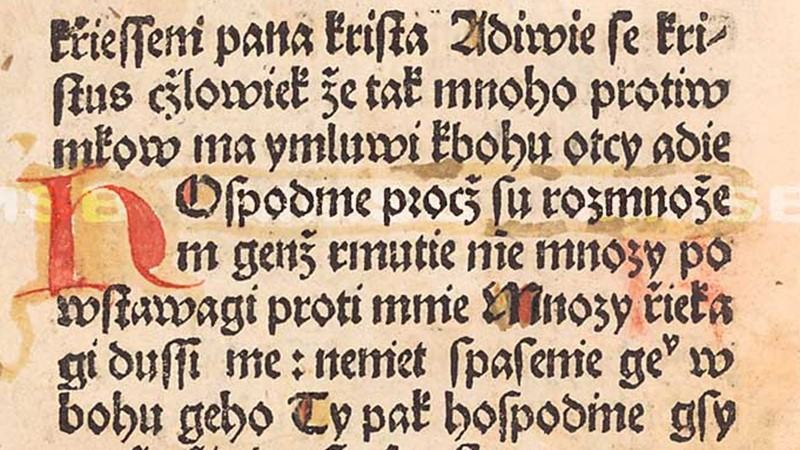 křiesseni pana krista Adiwie se kri⸗
stus cžlowiek že tak mnoho protiw
nikow ma ymluwi kbohu otcy adie
HOspodine procž su rozmnože
ni genž rmutie mie mnozy po
wstawagi proti mnie Mnozy řieka
gi dussi me : neniet spasenie geͮ w
bohu geho Ty pak hospodine gsy